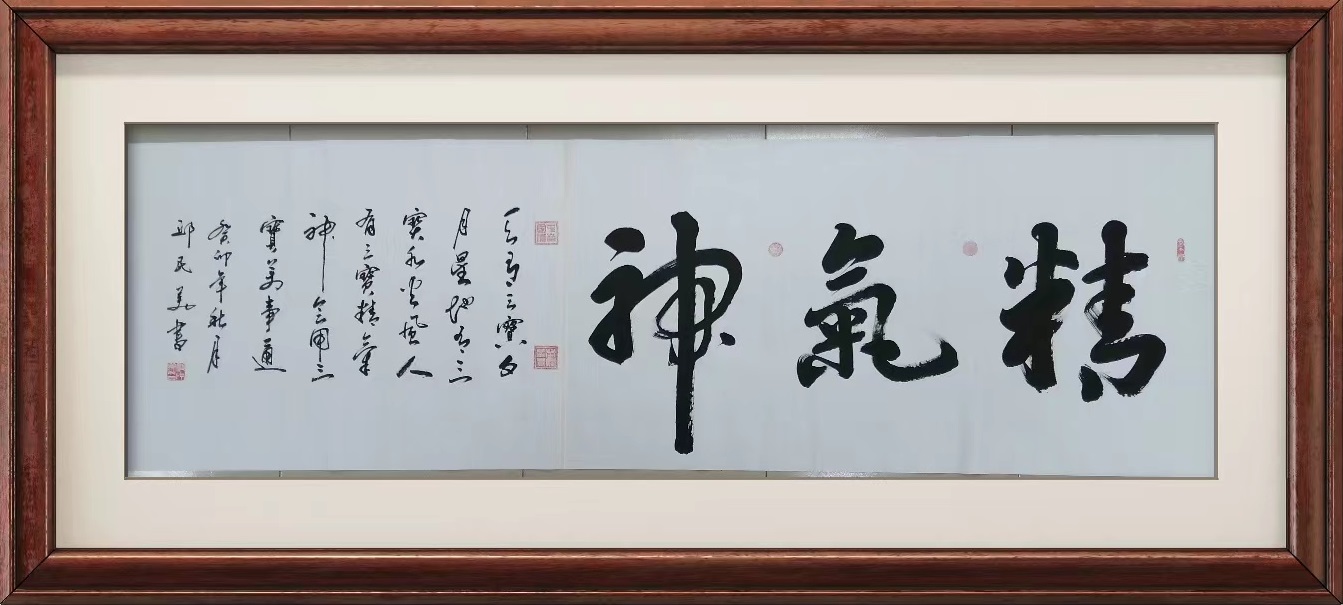 精氣神
天有三寶日
月星地有三
寶水火風人
有三寶精氣
神用三
寶萬事通
癸卯年秋月
邱民美書